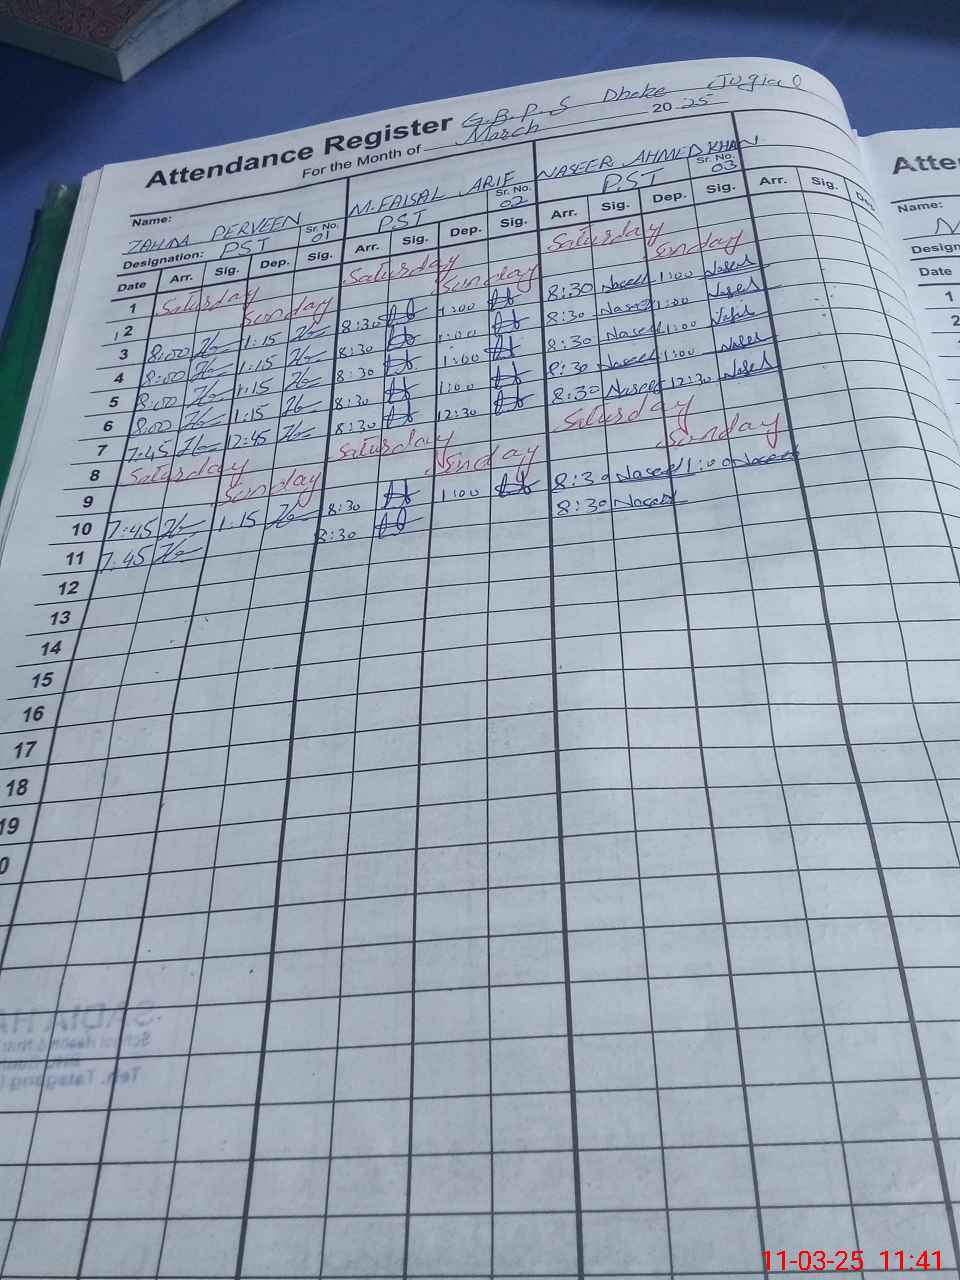 Attendance Register G.B.P.S Dheke Jugia 0
For the Month of March 2025
Name: ZAHIDA PERVEEN Sr. No. 01 M.FAISAL ARIF Sr. No. 02 NASEER AHMED KHAN Sr. No. 03
Designation: PST PST PST
Date Arr. Sig. Dep. Sig. Arr. Sig. Dep. Sig. Arr. Sig. Dep. Sig. Arr. Sig.
1 Saturday Saturday Saturday
2 Sunday Sunday Sunday
3 8:00 1:15 8:30 1:00 8:30 Naseer 1:00 Naseer
4 8:00 1:15 8:30 1:00 8:30 Naseer 1:00 Naseer
5 8:00 1:15 8:30 1:00 8:30 Naseer 1:00
6 8:00 1:15 8:30 1:00 8:30 Naseer 1:00 Naseer
7 7:45 12:45 8:30 12:30 8:30 Naseer 12:30 Naseer
8 Saturday Saturday Saturday
9 Sunday Sunday Sunday
10 7:45 1:15 8:30 1:00 8:30 Naseer 1:00 Naseer
11 7:45 8:30 8:30 Naseer
12
13
14
15
16
17
18
19
0
Atte
Name:
N
Design
Date
1
2
SADIA HA
School Health & Nutri
Teh. Talagang
11-03-25 11:41